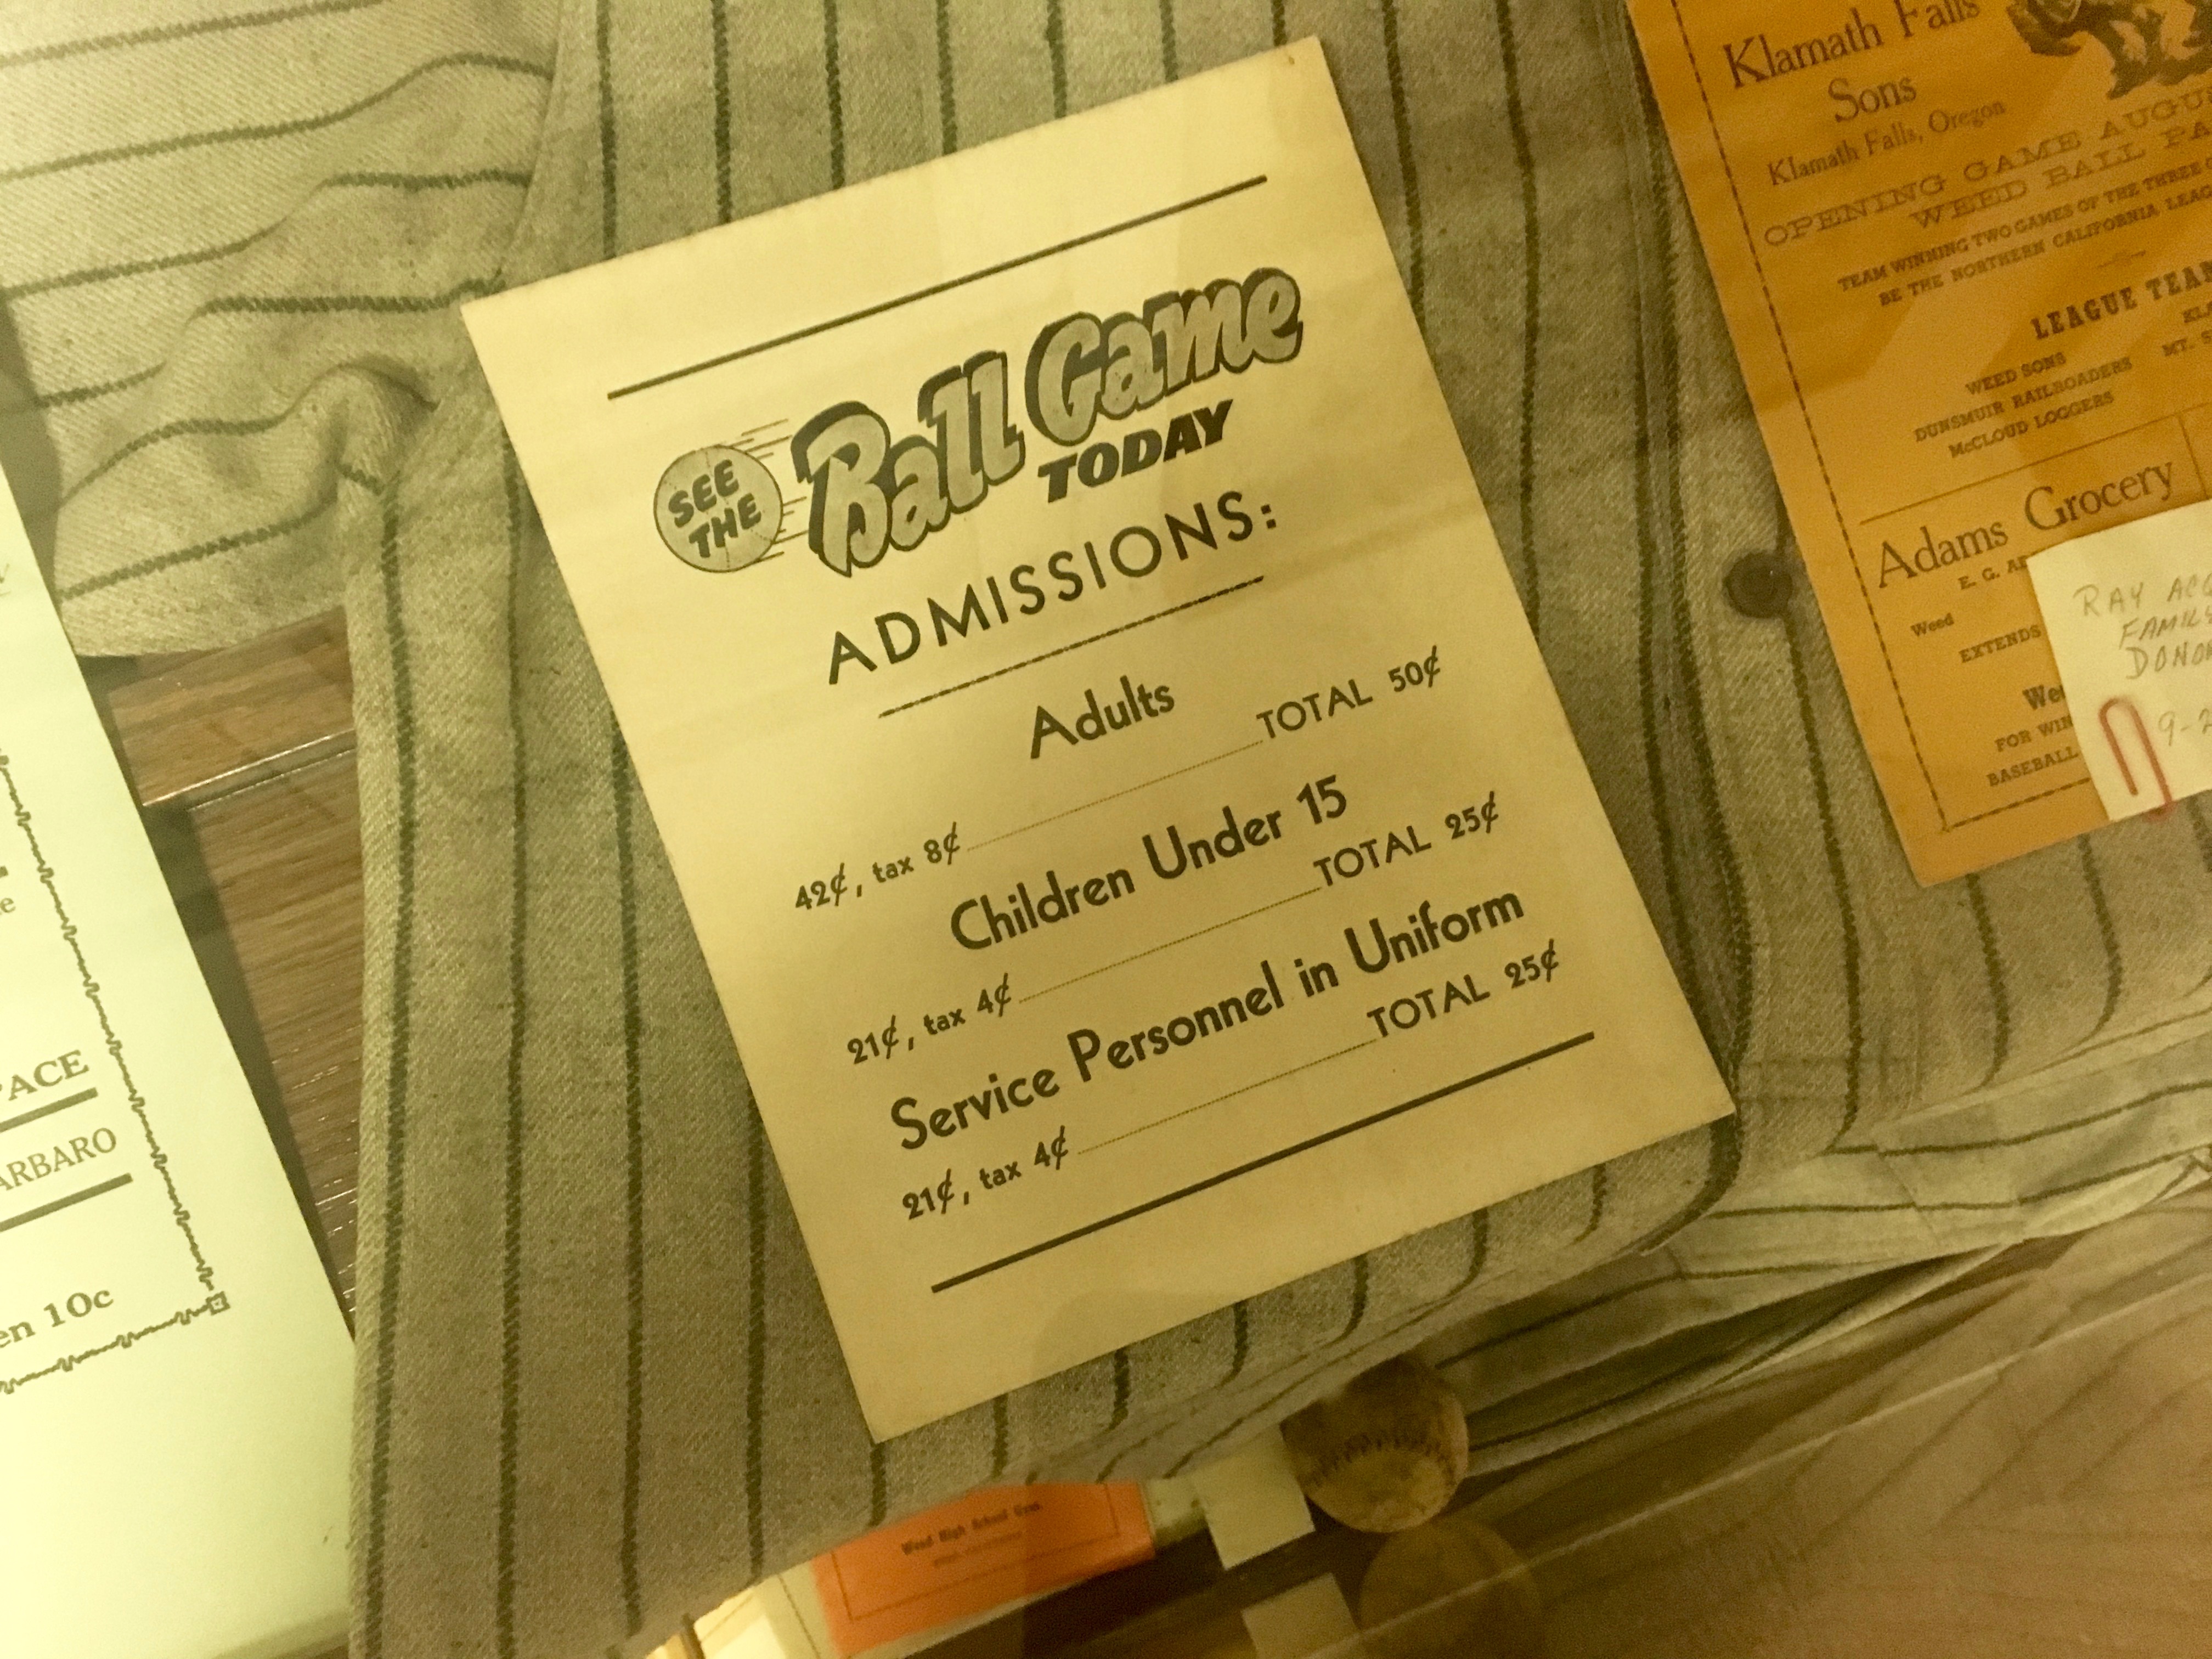 SEE
THE
Ball Game
TODAY
ADMISSIONS:
Adults
42¢, tax 8¢ TOTAL 50¢
Children Under 15
21¢, tax 4¢ TOTAL 25¢
Service Personnel in Uniform
21¢, tax 4¢ TOTAL 25¢
Klamath Falls
Sons
Klamath Falls, Oregon
OPENING GAME
WEED BALL
TEAM WINNING TWO GAMES OF THE THREE
BE THE NORTHERN CALIFORNIA
LEAGUE
WEED SONS
DUNSMUIR RAILROADERS
McCLOUD LOGGERS
MT.
Adams Grocery
E. G.
Weed
EXTENDS
FOR
BASEBALL
RAY
10c
Weed High School